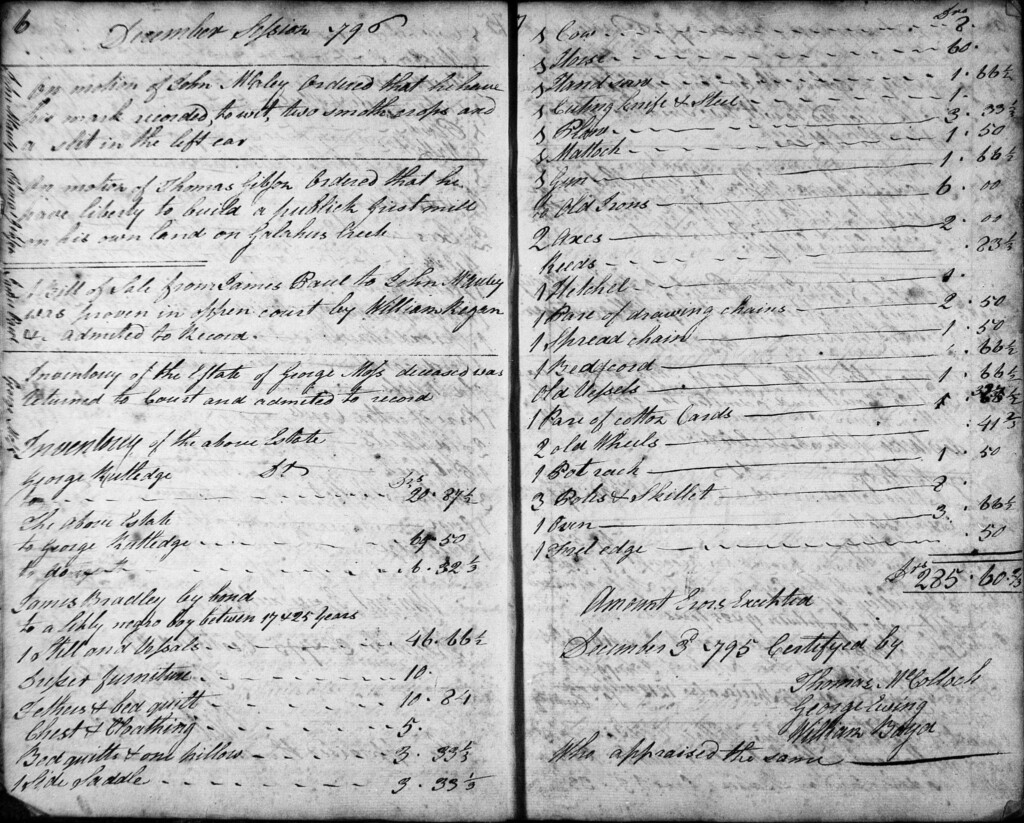 6
December Session 1796
On motion of John McCaley Ordered that he have
his mark recorded to wit, two smooth crops and
a slit in the left ear
On motion of Thomas Gibson Ordered that he
have liberty to build a publick Grist mill
on his own land on Galahus Creek
A Bill of Sale from James Paul to John
was proven in oppen court by William Regan
& admited to Record.
Inventory of the Estate of George Moss deceased was
returned to Court and admited to record
Inventory of the above Estate
George Rutledge Dr
to 20. 87½
The above Estate
to George Rutledge 69. 50
to do 6. 32⅓
James Bradley by bond
to a negro boy between 17 & 25 years
1 Still and Vessels 46. 66½
furniture 10.
& bed quilt 10. 84
Chest & Cloathing 5.
Bed quilt & one pillow 3. 33⅓
1 Side Saddle 3. 33⅓
7
Drs
1 Cow 8.
1 Horse 60.
1 Hand saw 1. 66½
1 Cuting knife & Steel 1.
1 Plow 3. 33⅓
1 Mattock 1. 50
1 Gun 1. 66½
to Old Irons 6. 00
2 Axes 2. 00
Reeds . 83½
1 Hetchel
1 Pare of drawing chains 2. 50
1 Spread chain 1. 50
1 Bed cord . 66½
Old Vessels 1. 66½
1 Pare of cotton Cards
2 old Wheels . 41⅔
1 Pot rack 1. 50
3 Pots & Skillet 2.
1 Oven 3. 66½
1 edge . 50
Drs 285. 60⅔
Amount Erors Excepted
December 3d 1795 Certifyed by
Thomas McColloch
George Ewing
William
Who appraised the same